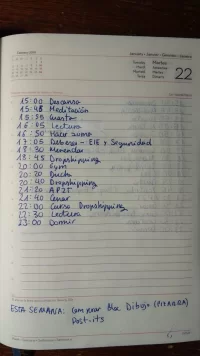 22
15:00 Descanso
15:45 Meditación
16:05 Lectura
16:50 Hacer sumo
17:05 Deberes - EIE y Seguridad
18:30 Merendar
18:45 Dropshipping
20:00 Gym
20:20 Ducha
20:40 Dropshipping
21:20 APZT
21:40 Cenar
22:00 Curso Dropshipping
22:30 Lectura
23:00 Dormir
ESTA SEMANA: Comprar Bloc Dibujo (PIZARRA)
Post-its